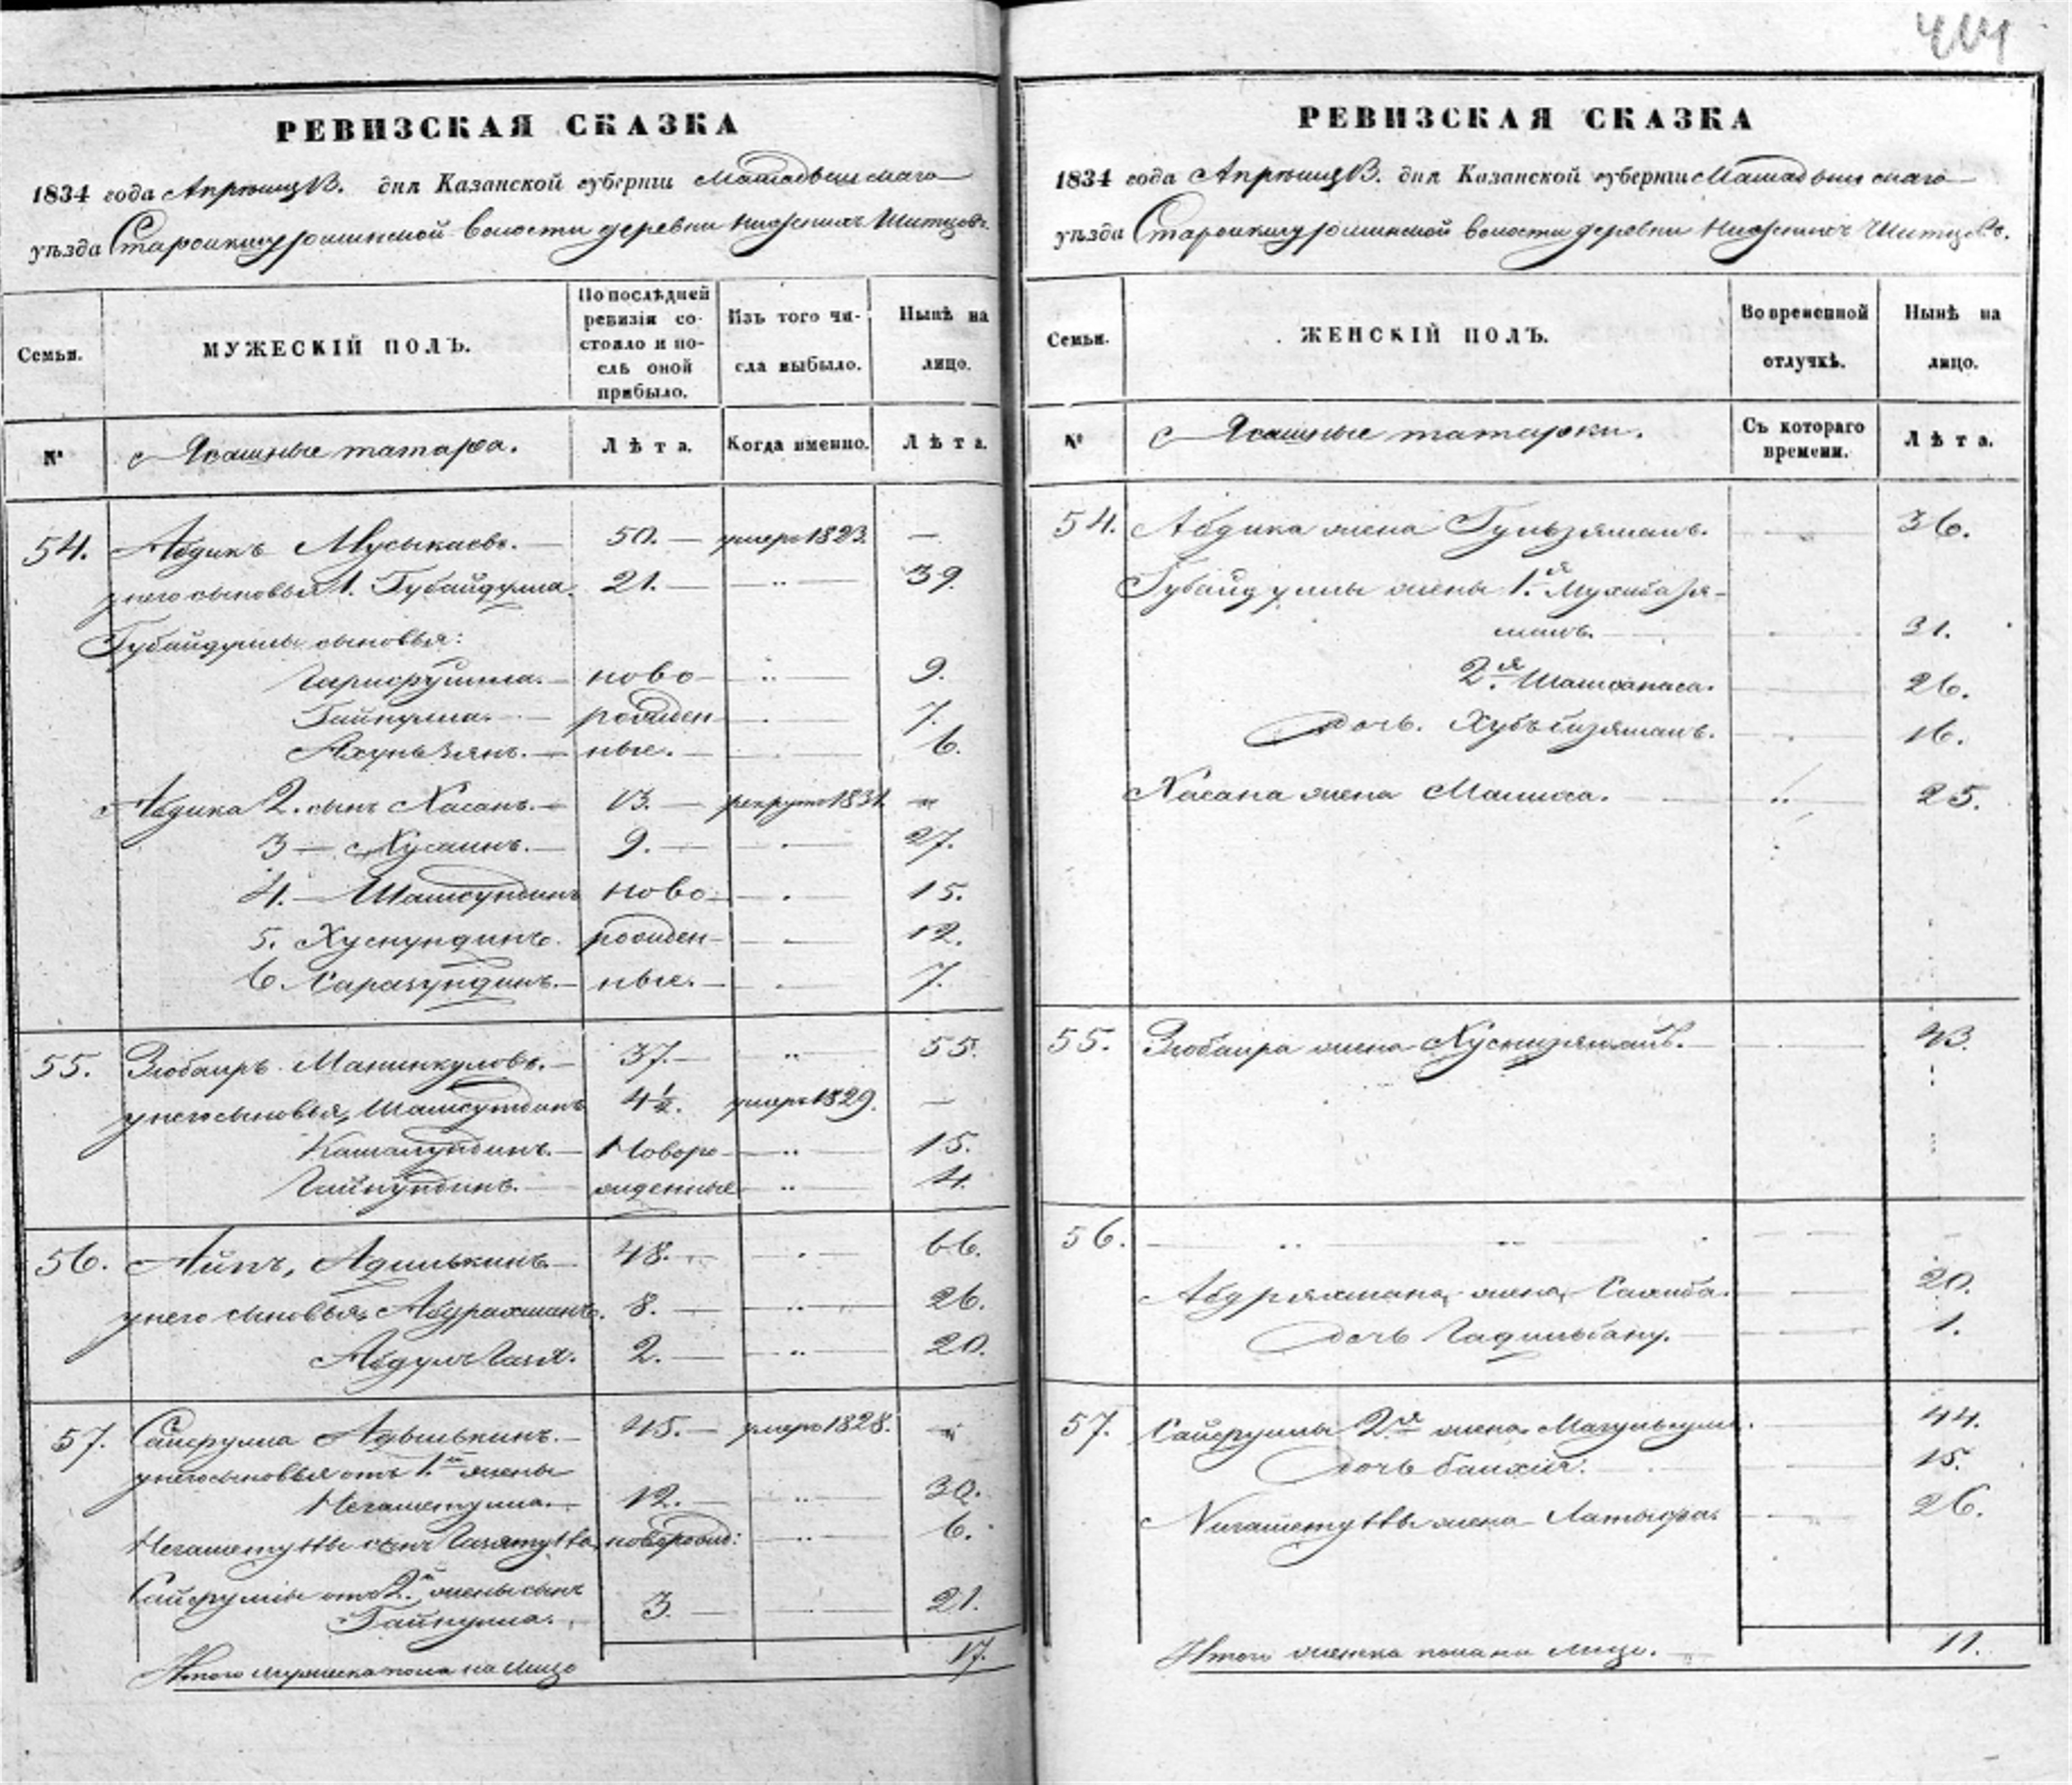 441
РЕВИЗСКАЯ СКАЗКА
1834 года Апрѣля 13. дня Казанской губерніи Мамадышскаго
уѣзда Старокишушминской волости деревни Нижнихъ Шитцовъ.
Семьи. МУЖЕСКІЙ ПОЛЪ. По послѣдней ревизіи состояло и послѣ оной прибыло. Изъ того числа выбыло. Нынѣ на лицо.
№ Ясашные татара. Лѣта. Когда именно. Лѣта.
54. Абдикъ Мусыкаевъ. 50. умеръ 1823. —
у него сыновья 1. Губайдулла. 21. — „ — 39.
Губайдуллы сыновья:
Гарифулла. ново- „ 9.
Гайнулла. рожден- 7.
Ахунзянъ. ные. 6.
Абдика 2. сынъ Хасанъ. 13. рекрутъ 1831. „
3 — Хусаинъ. 9. — 27.
4. — Шамсундинъ ново- 15.
5. Хуснундинъ рожден- 12.
6. Карагундинъ. ные. 7.
55. Зюбаиръ Маминкуловъ. 37. „ 55.
у него сыновья, Шамсундинъ 4½. умеръ 1829. —
Камалундинъ. Новоро- „ 15.
Гайнундинъ. жденные „ 4.
56. Аипъ, Адилькинъ. 48. — 66.
у него сыновья, Абдрахманъ. 8. — „ — 26.
Абдулъ Газя. 2. — „ — 20.
57. Сайфулла Адвилькинъ. 45. — умеръ 1828. „
у него сыновья отъ 1й жены
Негаметулла. 12. — „ — 30.
Негаметуллы сынъ Гизятулла. новорожд: „ 6.
Сайфуллы отъ 2й жены сынъ
Гайнулла. 3. — 21.
Итого мужеска пола на лицо 17.
РЕВИЗСКАЯ СКАЗКА
1834 года Апрѣля 13. дня Казанской губерніи Мамадышскаго
уѣзда Старокишушминской волости деревни Нижнихъ Шитцовъ.
Семьи. ЖЕНСКІЙ ПОЛЪ. Во временной отлучкѣ. Нынѣ на лицо.
№ Ясашные татарки. Съ котораго времени. Лѣта.
54. Абдика жена Гульзяманъ. 36.
Губайдуллы жены 1.я Мухибазя-
манъ. 31.
2.я Шамсаниса. 26.
дочь. Хубъбизяманъ. 16.
Хасана жена Малика. „ 25.
55. Зюбаира жена Хуснизяманъ. 43.
56. — „ — „ —
Абдряхмана жена, Салиба. 20.
дочь Гадильбану. 1.
57. Сайфуллы 2.я жена Магульсум. 44.
дочь Баихия. 15.
Нигаметуллы жена Латыфа. 26.
Итого женска пола на лицо. 11.